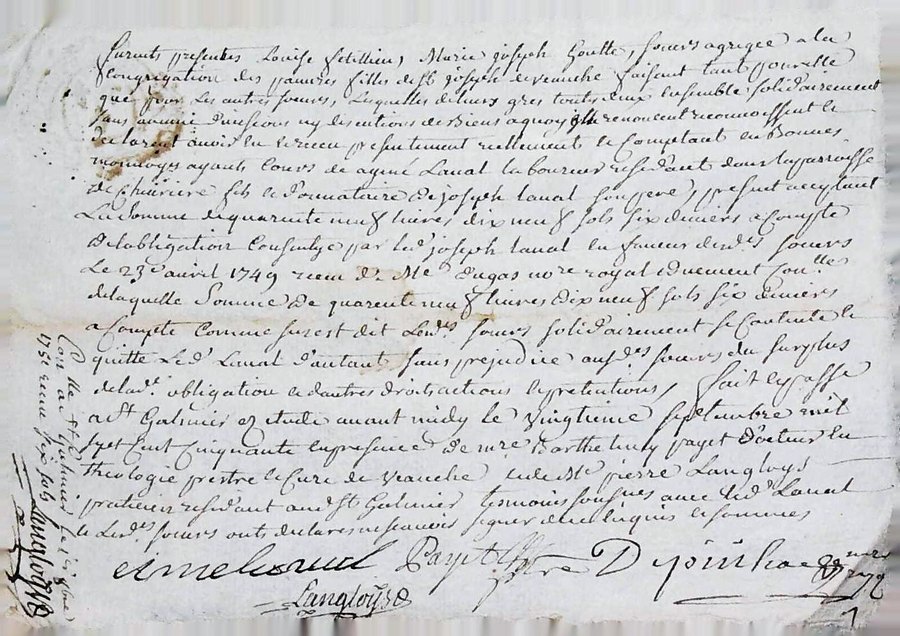 furent presentes Louise fetillieu, Marie joseph Goutte, soeurs agregée a la
Congregation des pauvres filles de St joseph de veauche faisant tant pour elle
que pour les autres soeurs, Lesquelles de leurs gres toutes deux Ensemble solidairement
sans aucune division ny discutions de Biens a quoy renoncent reconnoissent et
declarent avoir Eu et receu presentement reellement et Comptant en Bonnes
monnoyes ayants Cours de aymé Lanat laboureur residant dans la parroisse
de fils et donnataire de joseph Lanat son pere, present acceptant
La somme de quarente neuf livres dix neuf sols six deniers a Compte
de lobligation Consentye par led. joseph Lanat en faveur desd.s soeurs
Le 23e avril 1749 receu Dt Me Dugas nore royal
de laquelle somme de quarente neuf livres dix neuf sols six deniers
a Compte Comme sus est dit Lesd.s soeurs solidairement se Contente et
quitte Led. Lanat d'autant sans prejudice ausd.s soeurs du surplus
de lad. obligation et dautres droits actions et pretentions, fait et passe
a St Galmier ez etude avant midy le vingtieme septembre mil
sept Cent Cinquante En presence de mre Barthelemy payet Docteur En
theologie prestre et Curé de veauche et de Me pierre Langloys
praticien residant aud. St Galmier temoins soussignes avec led. Lanat
et Lesd.s soeurs ont declarés ne scavoir signer de ce enquis et sommes
eime Lanat Payet
Langloys
Con.lle a St Galmier Le
1750 receu six sols
Langloys